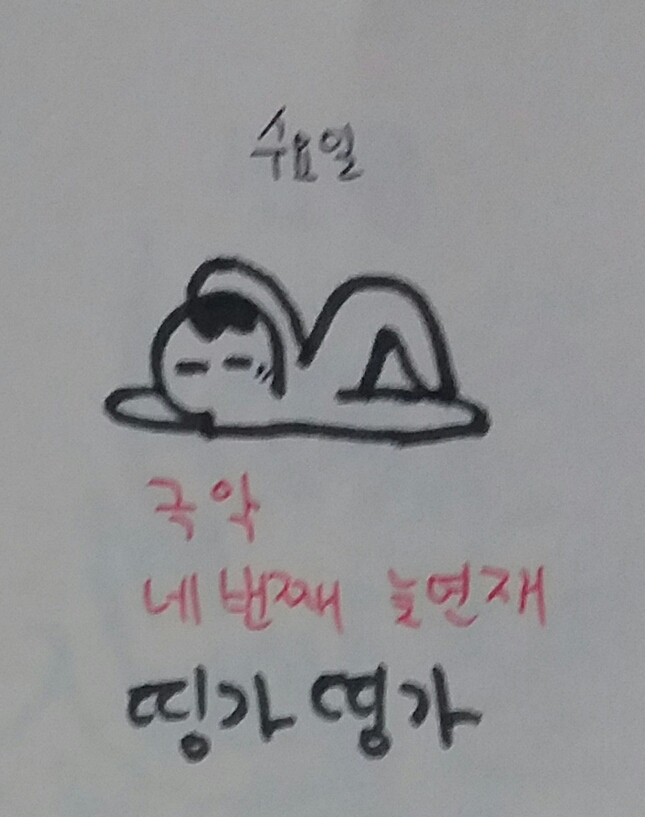 수요일
국악
네 번째 늦연재
띵가 띵가